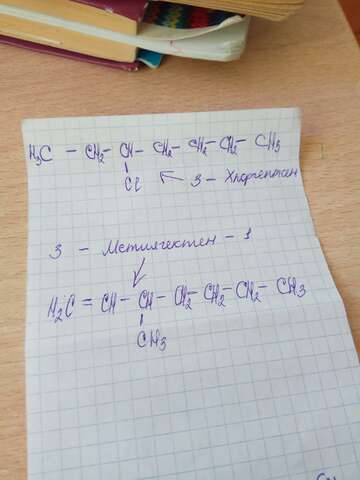 H₃C – CH₂ – CH – CH₂ – CH₂ – CH₂ – CH₃
Cl
3 – Хлоргептан
3 – Метилгептен – 1
H₂C = CH – CH – CH₂ – CH₂ – CH₂ – CH₃
CH₃